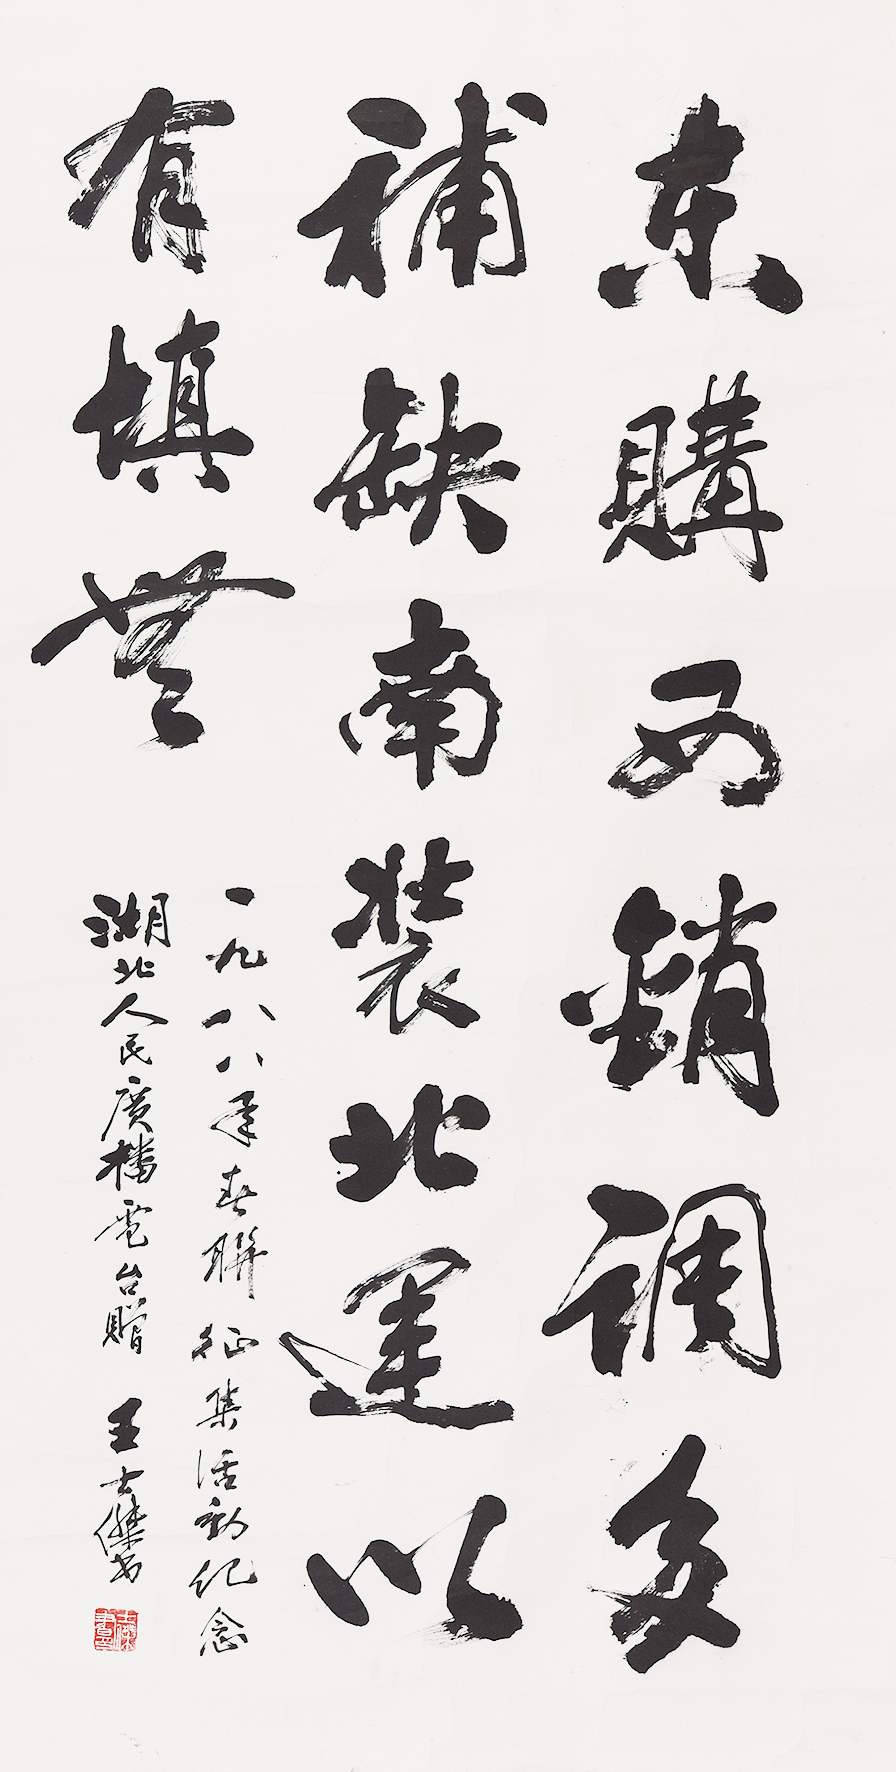 东購西銷調多
補缺南装北運以
有填無
一九八八年春聯征集活動纪念
湖北人民廣播電台贈 王士傑书